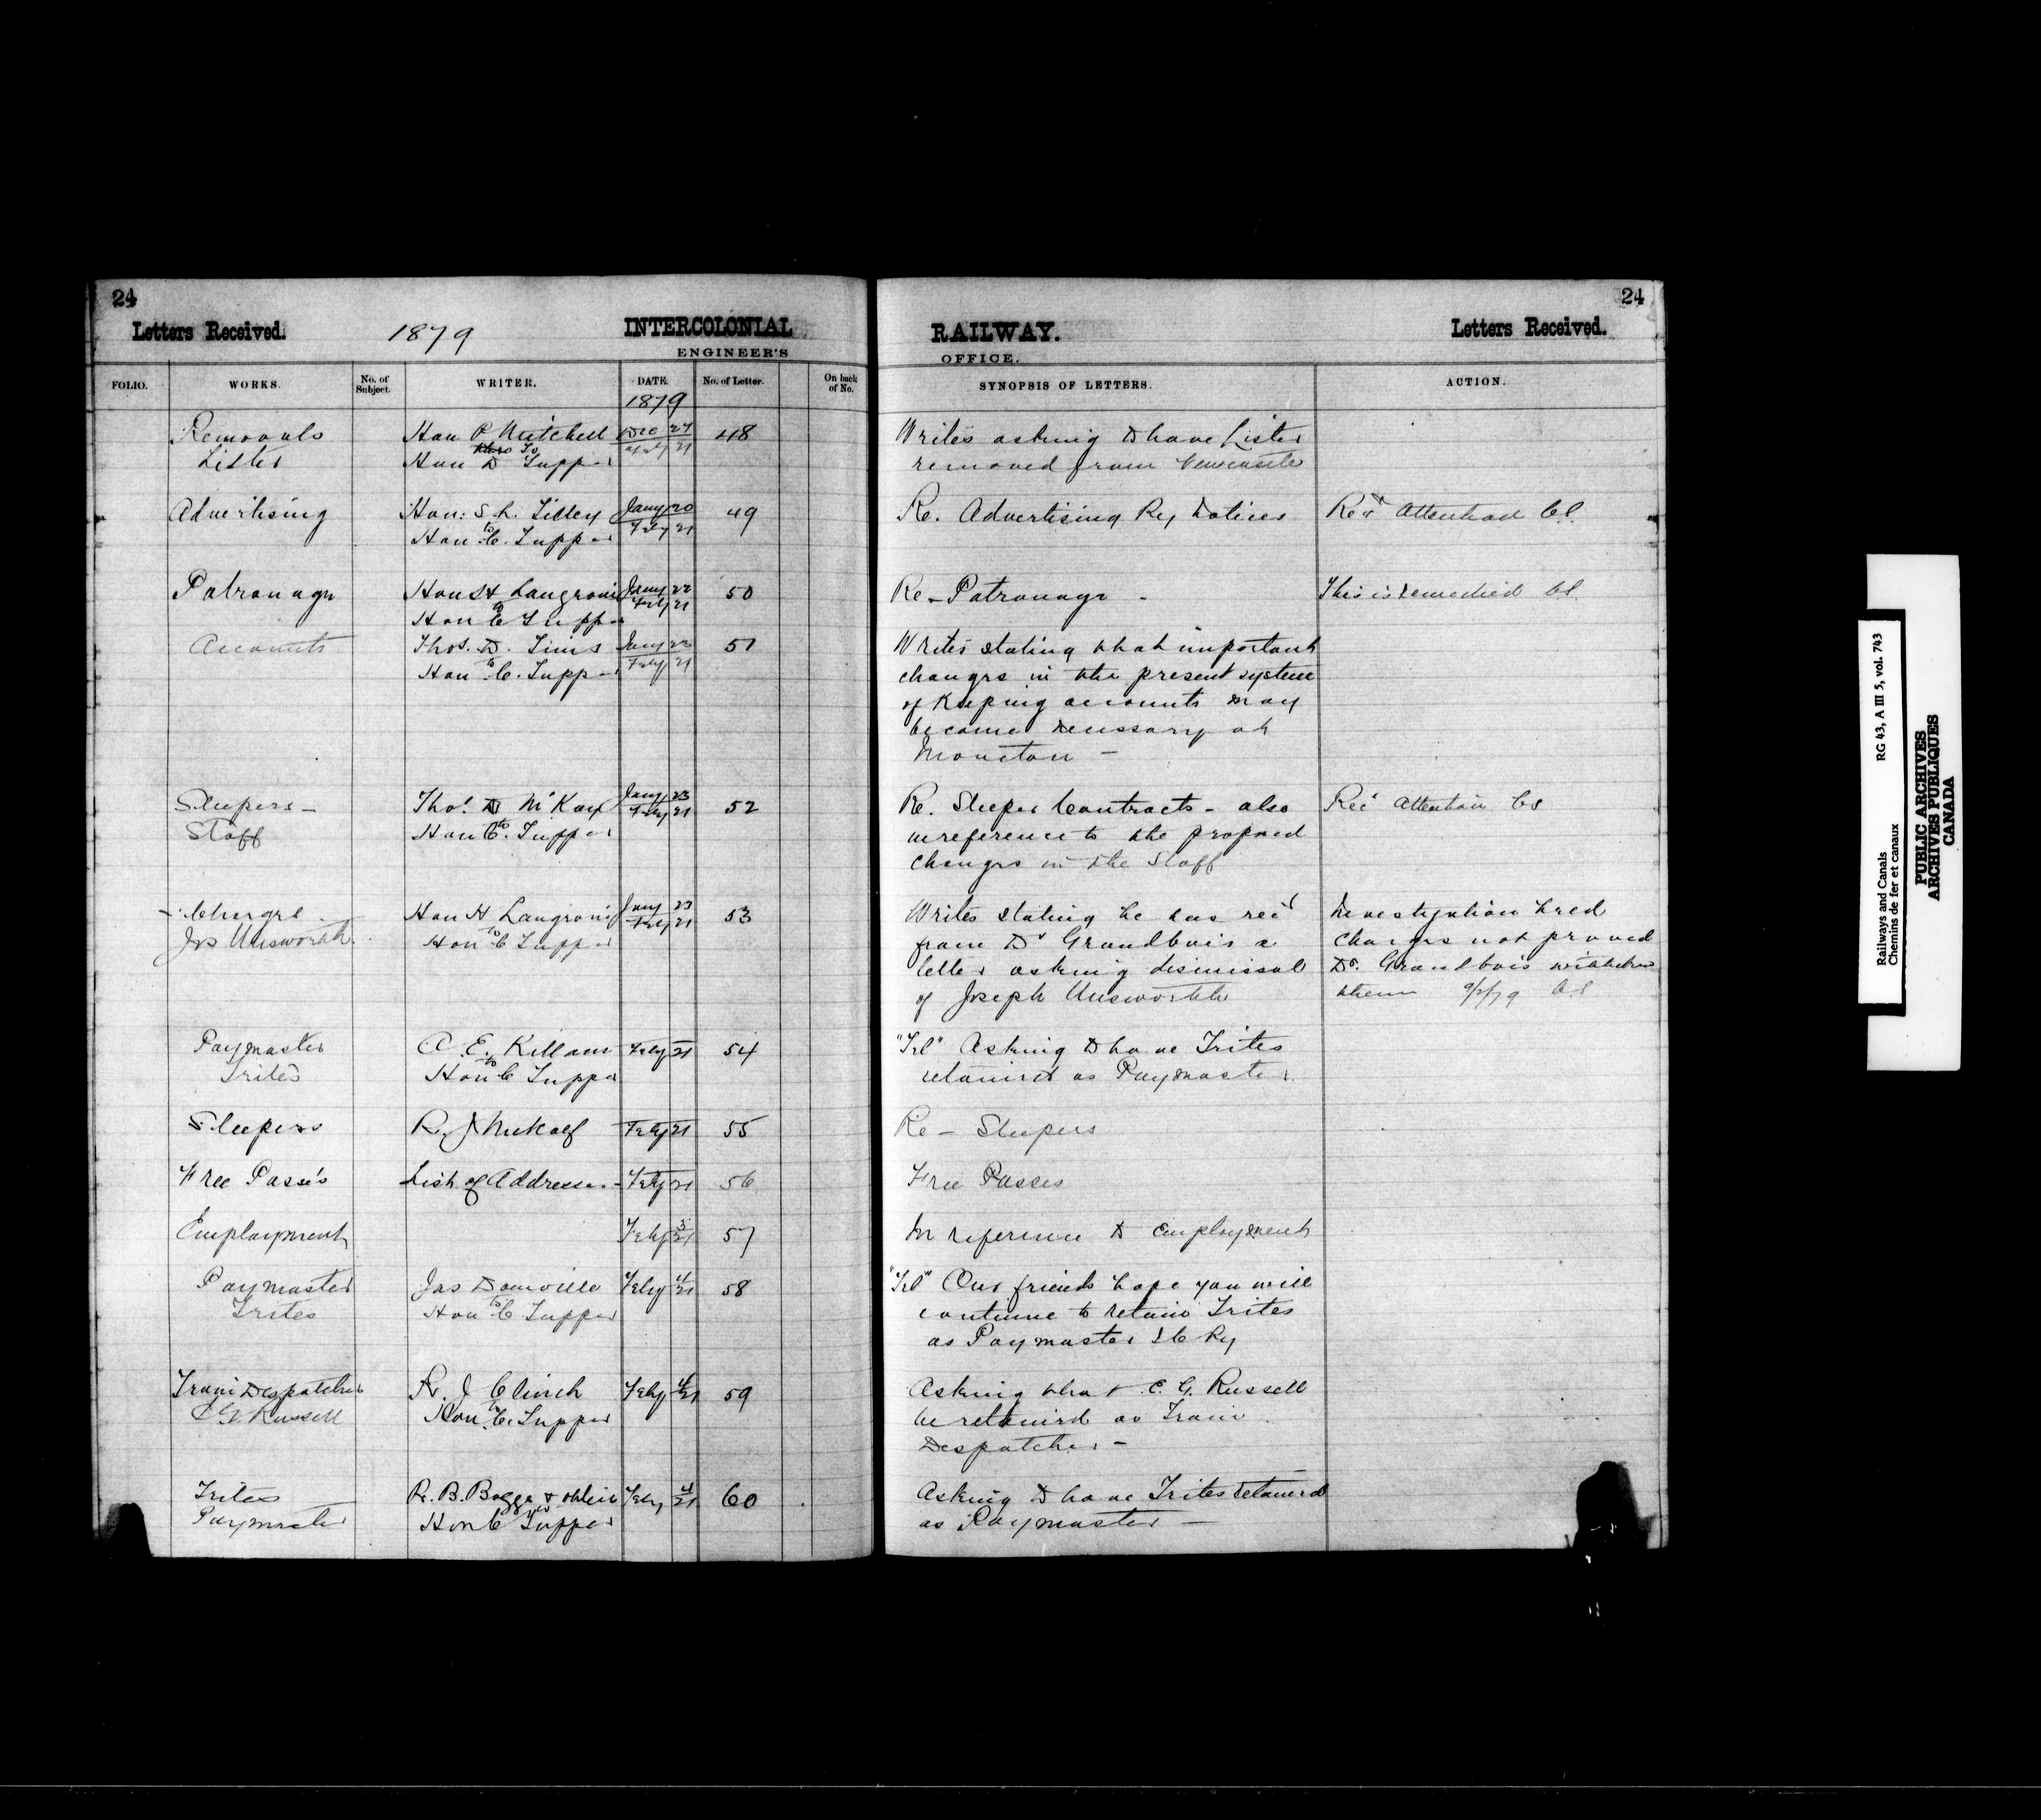 24
Letters Received.
1879
INTERCOLONIAL
ENGINEER'S
FOLIO.
WORKS.
No. of Subject.
WRITER.
DATE.
No. of Letter.
On back of No.
1879
Removals
Lister
Hon P. Mitchell
to
Hon Tupper
Dec 27
Feby 21
48
Advertising
Hon: S. L. Tilley
to
Hon C. Tupper
Jany 20
Feby 21
49
Patronage
Hon H Langevin
to
Hon C Tupper
Jany 22
Feby 21
50
Accounts
Thos. D. Tims
to
Hon C. Tupper
Jany 22
Feby 21
51
Sleepers –
Staff
Thos McKay
to
Hon C. Tupper
Jany 23
Feby 21
52
Charges
Jos Unsworth
Hon H Langevin
to
Hon C Tupper
Jany 23
Feby 21
53
Paymaster
Trites
A. E. Killam
to
Hon C Tupper
Feby 21
54
Sleepers
R. J Metcalf
Feby 21
55
Free Passes
List of Addresses –
Feby 21
56
Employment
Feby 3/21
57
Paymaster
Trites
Jas Domville
to
Hon C Tupper
Feby 4/21
58
Train Despatcher
C G. Russell
R. J Clinch
to
Hon C. Tupper
Feby 4/21
59
Trites
Paymaster
R. B. Boggs & others
to
Hon C Tupper
Feby 4/21
60
24
RAILWAY.
Letters Received.
OFFICE.
SYNOPSIS OF LETTERS.
ACTION.
Writes asking to have Lister
removed from Newcastle
Re. Advertising Ry Notices
Recd attention CS.
Re – Patronage –
This is remedied CS.
Writes stating that important
changes in the present system
of Keeping accounts may
become necessary at
Moncton –
Re. Sleeper Contracts – also
in reference to the proposed
changes in the Staff
Recd attention CS
Writes stating he has recd
from Dr Grandbois a
letter asking dismissal
of Joseph Unsworth
Investigation held
Charges not proved
Dr. Grandbois withdrew
them 9/2/79 CS
"Tel" Asking to have Trites
retained as Paymaster.
Re – Sleepers
Free Passes
In reference to Employment
"Tel" Our friends hope you will
continue to retain Trites
as Paymaster I C Ry
Asking that C. G. Russell
be retained as Train
Despatcher –
Asking to have Trites retained
as Paymaster –
Railways and Canals
Chemins de fer et canaux
RG 43, A III 5, vol. 743
PUBLIC ARCHIVES
ARCHIVES PUBLIQUES
CANADA